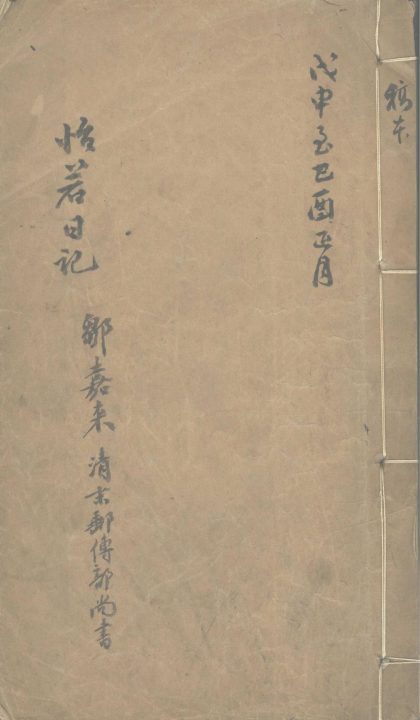 稿本
戊申至己酉正月
怡若日记
鄒嘉来 清末郵傳部尚書